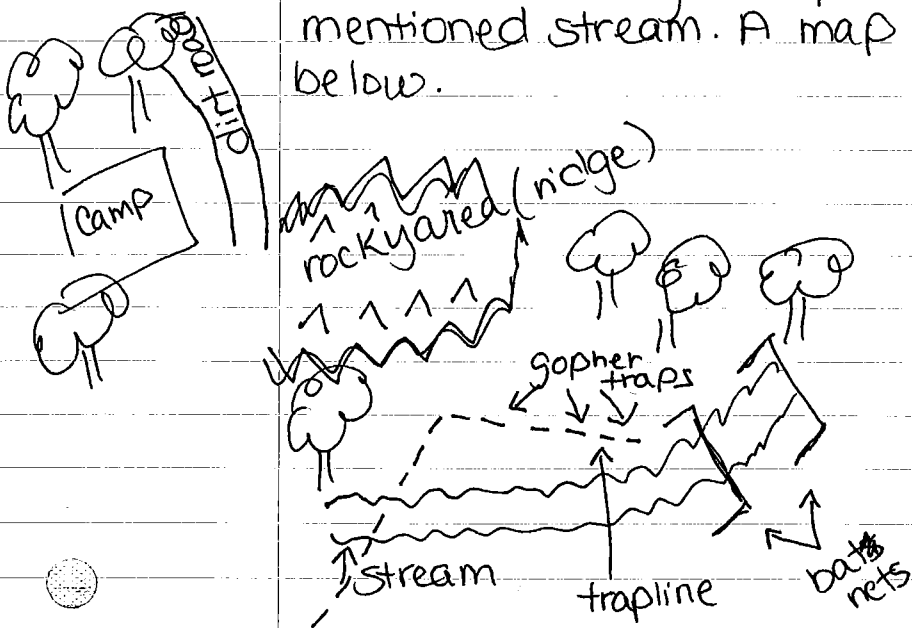 mentioned stream. A map
below.
dirt road
camp
rockyared (ridge)
gopher
traps
stream
trapline
bat
nets